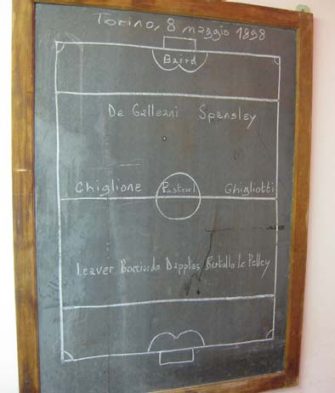 Torino, 8 maggio 1898
Baird
De Galleani Spensley
Ghiglione Pasteur Ghigliotti
Leaver Bocciardo Dapples Bertollo Le Pelley